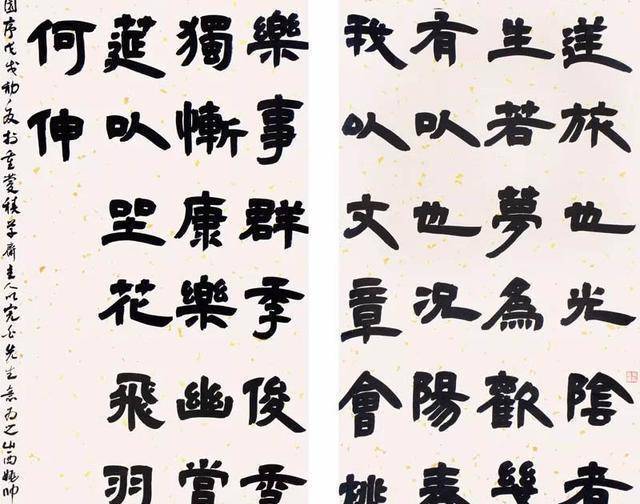 逆旅也光陰者
生若夢為歡幾
有以也況陽春
我以文章會桃
樂事群季俊秀
獨慚康樂幽賞
莚以坐花飛羽
何伸
園序戊戌初夏於重慶積學齋主人以完白先生意為之山西姚帅